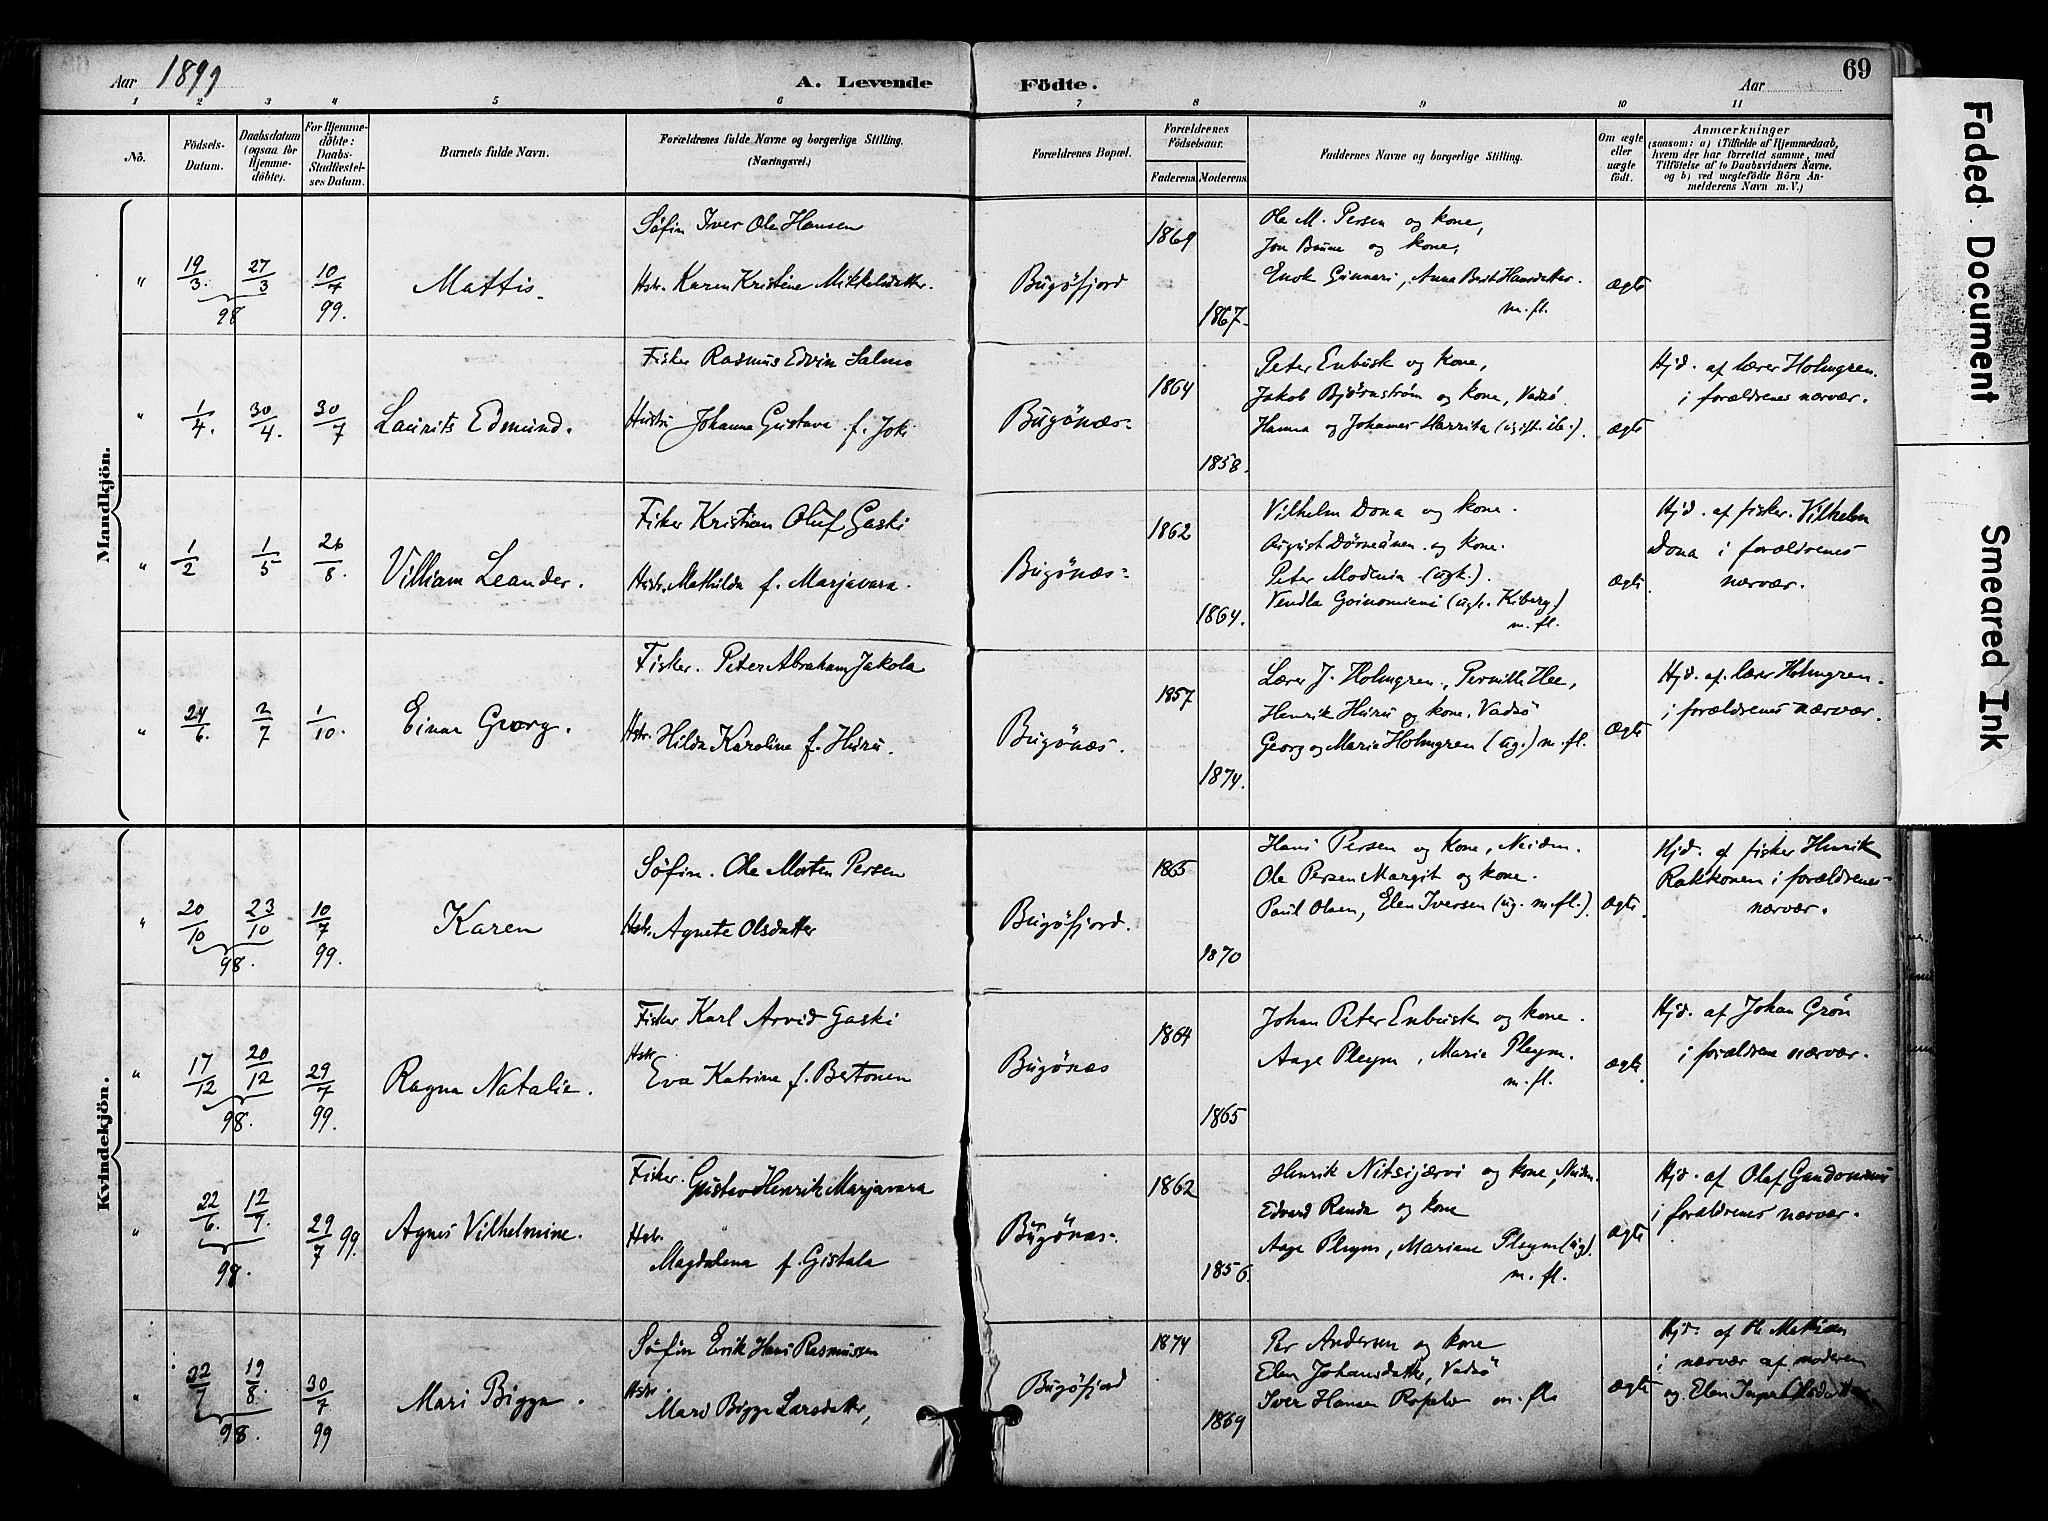 Aar 1899
A. Levende
Födte.
Aar
69
1 2 3 4 5 6 7 8 9 10 11
No.
Födsels-
Datum.
Daabsdatum
(ogsaa for
Hjemme-
döbte).
For Hjemme-
döbte:
Daabs-
Stadfæstel-
ses Datum.
Barnets fulde Navn.
Forældrenes fulde Navne og borgerlige Stilling.
(Næringsvei.)
Forældrenes Bopæl.
Forældrenes
Födselsaar.
Faderens.
Moderens.
Faddernes Navne og borgerlige Stilling.
Om ægte
eller
uægte
födt.
Anmærkninger
(saasom: a) i Tilfælde af Hjemmedaab,
hvem der har forrettet samme, med
Tilföielse af to Daabsvidners Navne,
og b) ved uægtefödte Börn An-
melderens Navn m. V.)
Mandkjön.
" 19/3 27/3 98 10/7 99.
Mattis.
Søfin Iver Ole Hansen
Hstr. Karen Kristine Mikkelsdatter.
Bugöfjord
1869
1867.
Ole M. Persen og kone,
Jon Banne og kone,
Enok Ginnari, Anna Brit Hansdatter
m. fl.
ægte
" 1/4. 30/4. 30/7
Laurits Edmund.
Fisker Rasmus Edvin Salmo
Hustru Johanna Gustava f. Joki
Bugönæs.
1864
1858.
Peter Enbusk og kone,
Jakob Björnström og kone, Vadsö.
Hanna og Johannes Harrita
ægte
Hjd. af lærer Holmgren.
i forældrenes nærvær.
" 1/2 1/5 26/8.
Villiam Leander.
Fisker Kristian Oluf Gaski
Hstr. Mathilda f. Marjavara.
Bugönæs.
1862
1864.
Vilhelm Dona og kone.
August Dörmänen og kone.
Peter Modenia (ugk.).
Vendla Goinomieni (ugk. Kiberg)
m. fl.
ægte.
Hjd. af fisker. Vilhelm
Dona i forældrenes
nærvær.
" 24/6. 2/7 1/10.
Einar Georg.
Fisker. Peter Abraham Jakola
Hstr. Hilda Karoline f. Huru.
Bugönæs.
1857
1874.
Lærer J. Holmgren, Pernille Hee,
Henrik Huru og kone, Vadsö
Georg og Marie Holmgren (ug.) m. fl.
ægte
Hjd. af. lærer Holmgren.
i forældrenes nærvær.
Kvindekjön.
" 20/10 23/10 98. 10/7 99.
Karen
Søfin. Ole Morten Persen
Hstr. Agnete Olsdatter
Bugöfjord.
1865
1870
Hans Persen og kone, Neiden.
Ole Persen Margit og kone.
Paul Olsen, Elen Iversen (ug. m. fl.).
ægte.
Hjd. af fisker Henrik
Rakkonen i forældrenes
nærvær.
" 17/12 20/12 98. 29/7 99.
Ragna Natalie.
Fisker Karl Arvid Gaski
Hstr.
Eva Katrina f. Bertonen
Bugönæs
1864
1865
Johan Peter Enbusk og kone.
Aage Pleym, Marie Pleym.
m. fl.
ægte
Hjd. af Johan Grön
i forældrene nærvær.
" 22/6. 12/9. 98. 29/7 99.
Agnes Vilhelmine.
Fisker. Gustav Henrik Marjavara
Hstr.
Magdalena f. Gistala
Bugönæs.
1862
1856.
Henrik Nitsijærvi og kone, Neiden.
Edvard Randa og kone
Aage Pleym, Mariane Pleym (ug).
m. fl.
ægte
Hjd. af Olaf
i forældrenes nærvær.
" 22/7 19/8. 98. 30/7 99
Mari Bigga.
Søfin Erik Hans Rasmussen
Hstr.
Mari Bigga Larsdatter,
Bugöfjord
1874
1869
Per Andersen og kone
Elen Johansdatter, Vadsö
Iver Hansen og m. fle
ægte
Hjd. af Ole Mathisen
i nærvær af moderen
og Elen
Faded Document
Smeared Ink